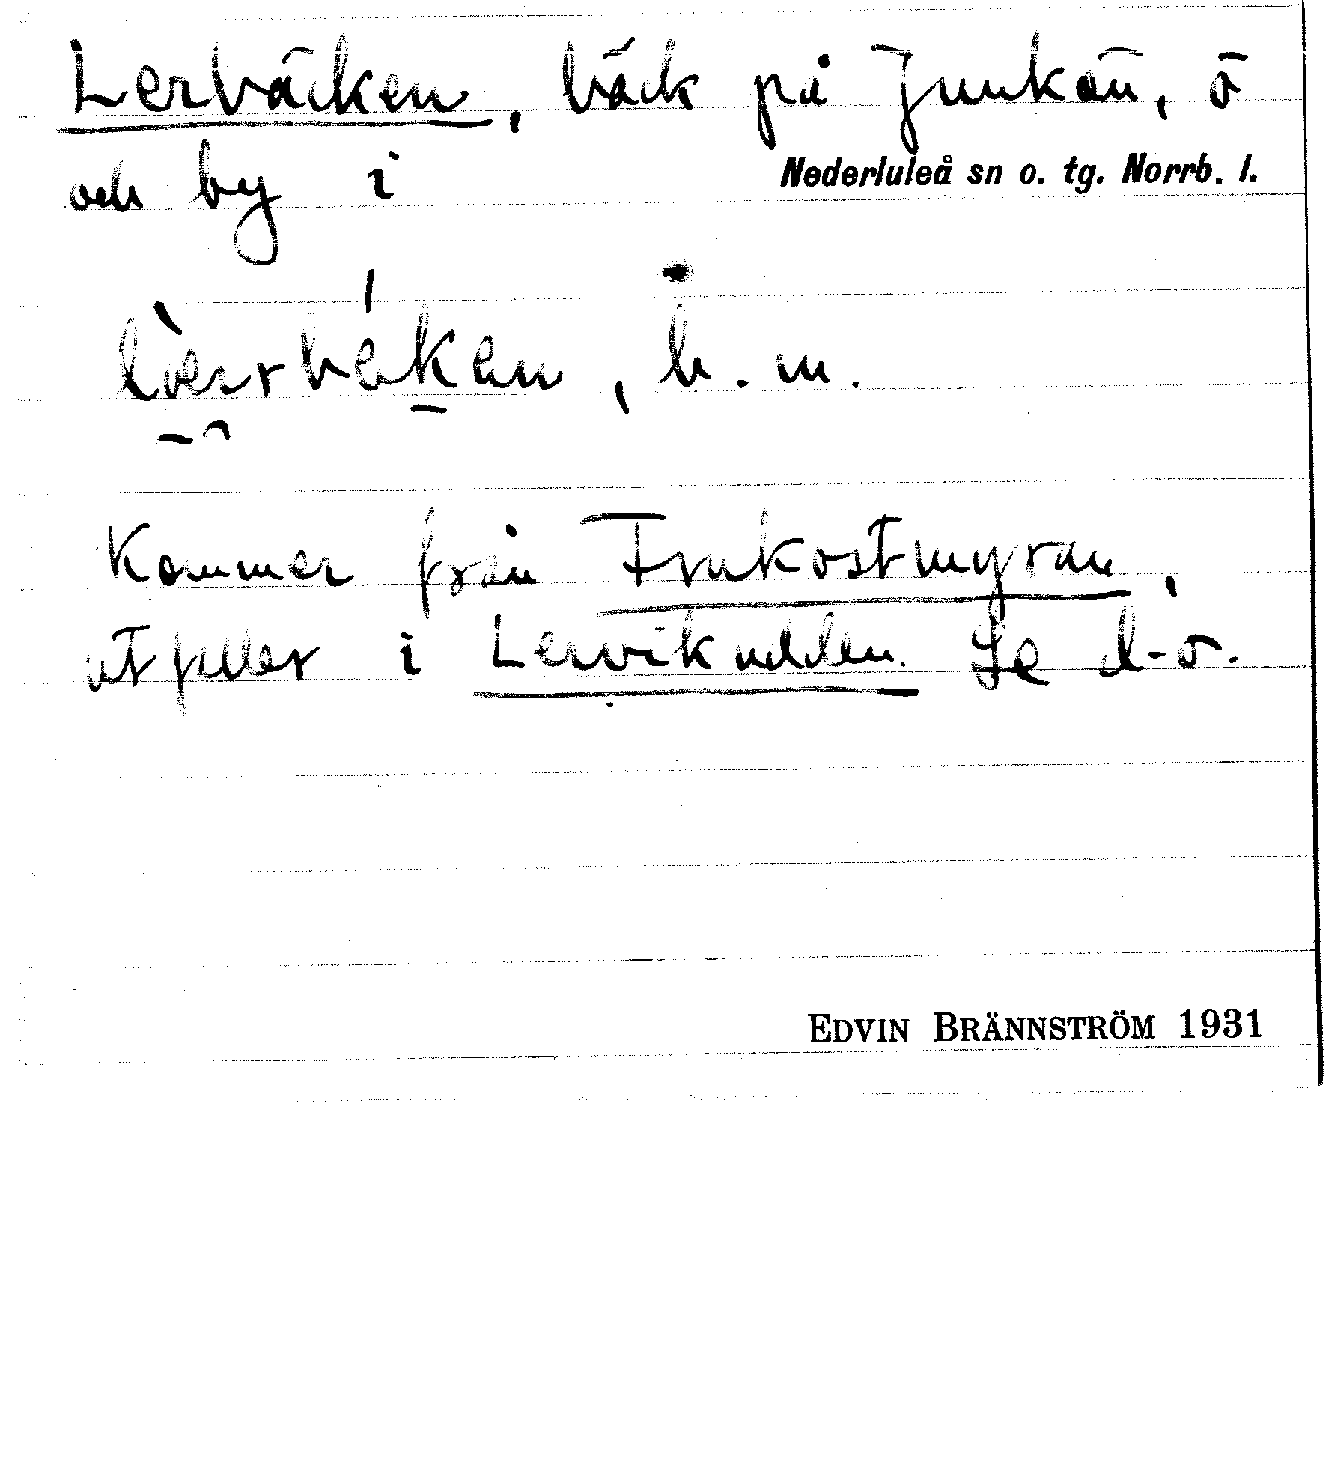 Lerbäcken, bäck på Junkön, ö
och by i Nederluleå sn o. tg. Norrb. l.
b. m.
Kommer från Frukostmyran,
utfaller i Lervikudden. Se d-o.
EDVIN BRÄNNSTRÖM 1931